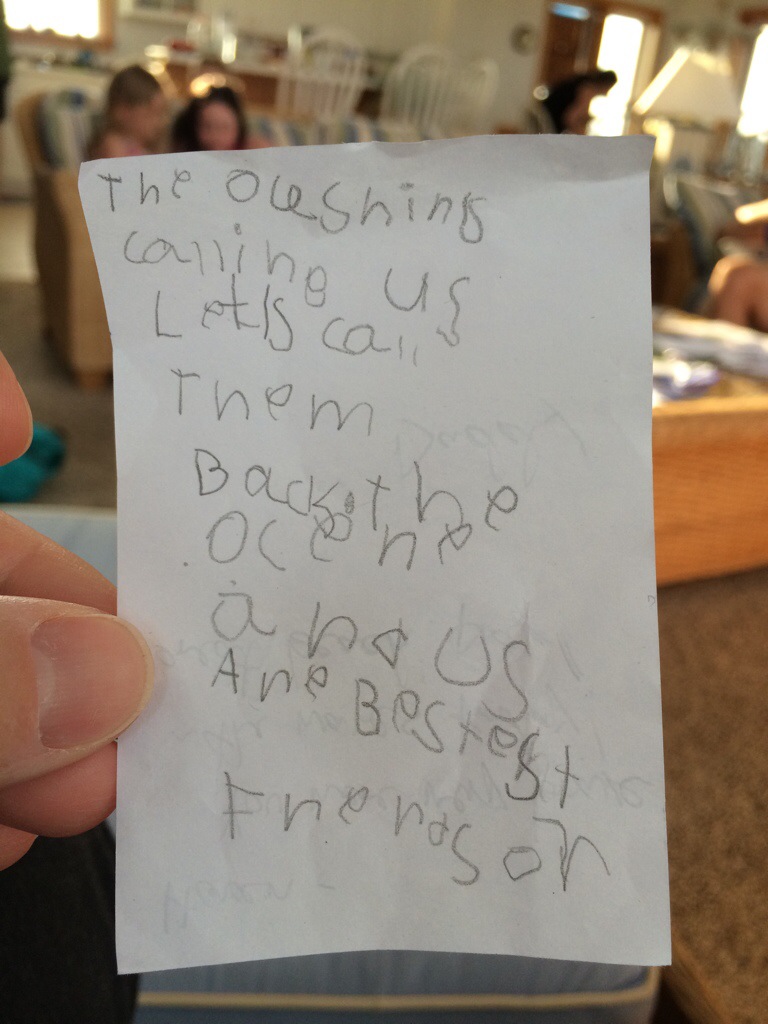 The Oceshins
calling us
Let's call
Them
Back. the
Ocene
and us
Are Bestest
Frends on